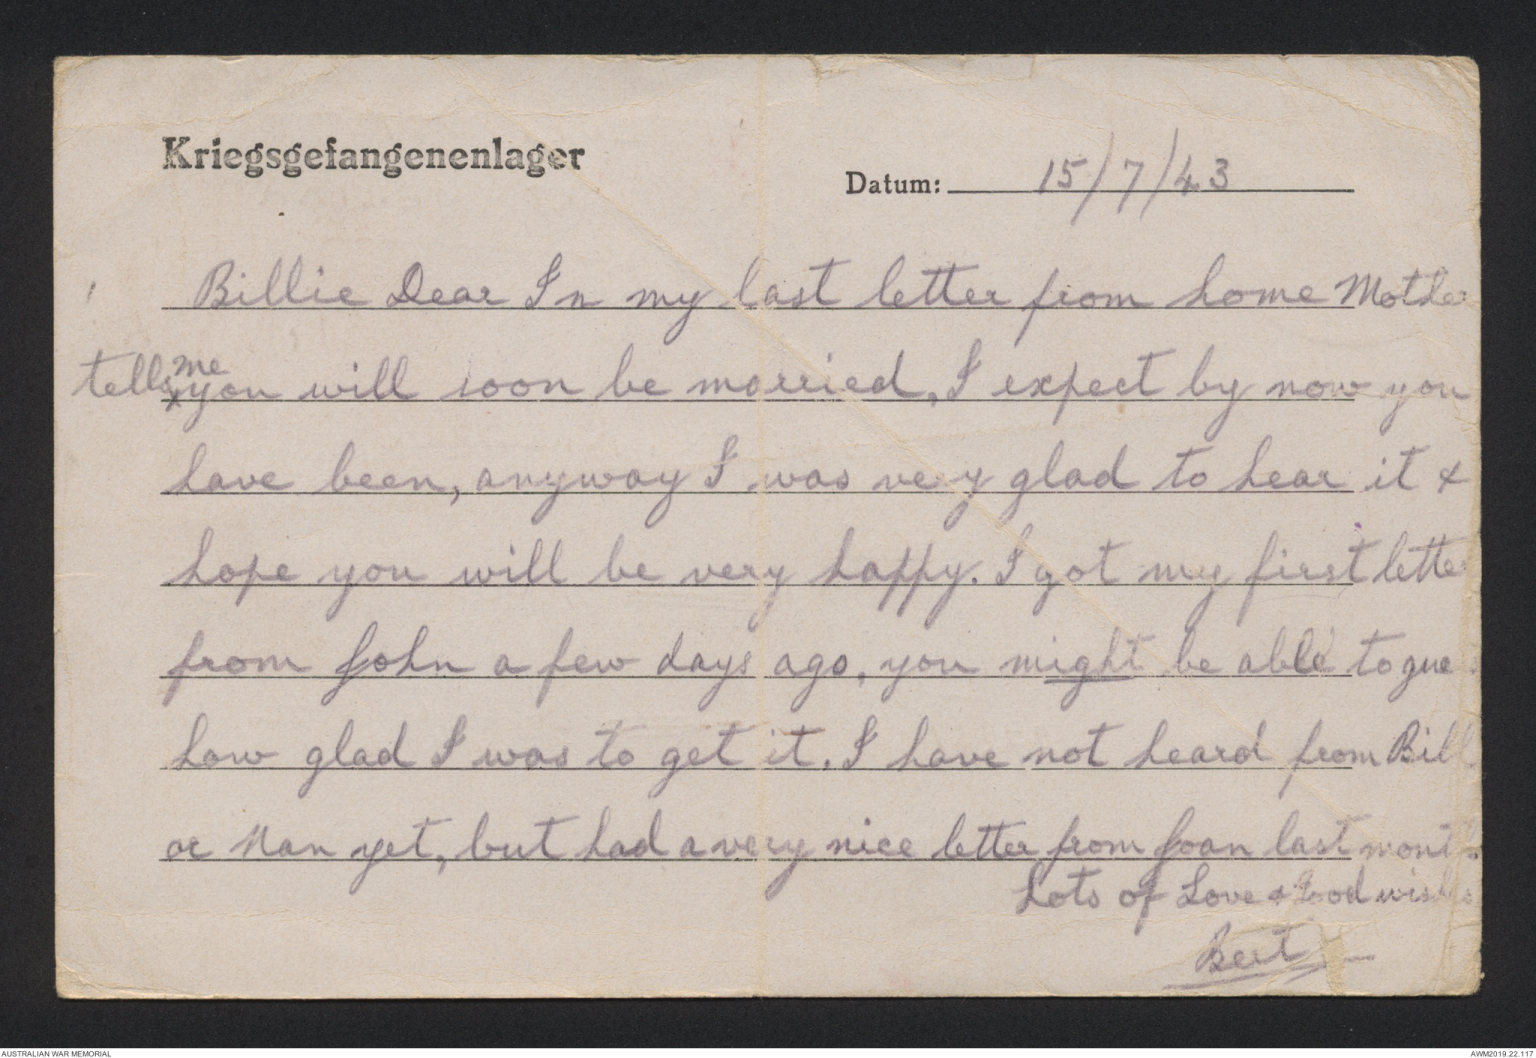 Kriegsgefangenenlager
Datum: 15/7/43
Billie Dear In my last letter from home Mother
tells me you will soon be married, I expect by now you
have been, anyway I was very glad to hear it &
hope you will be very happy. I got my first letter
from John a few days ago, you might be able to gue
how glad I was to get it. I have not heard from Bill
or Nan yet, but had a very nice letter from Joan last month
Lots of Love & Good wishes
Bert
AUSTRALIAN WAR MEMORIAL
AWM2019.22.117